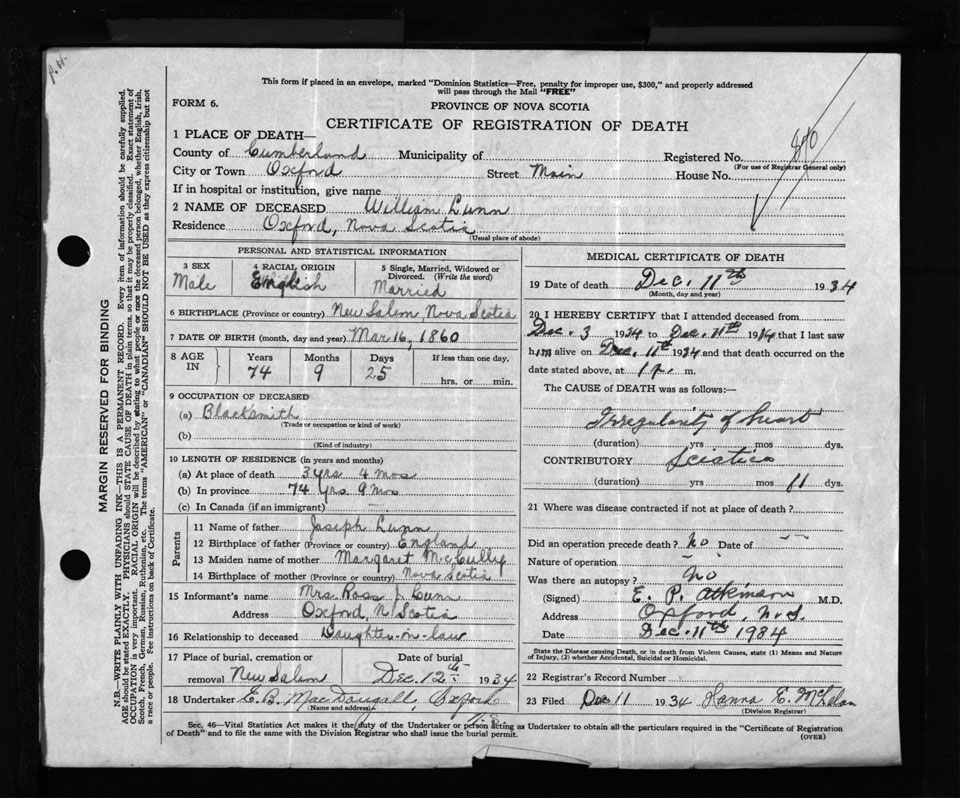 P.H.
This form if placed in an envelope, marked "Dominion Statistics—Free, penalty for improper use, $300," and properly addressed
will pass through the Mail "FREE"
FORM 6.
PROVINCE OF NOVA SCOTIA
CERTIFICATE OF REGISTRATION OF DEATH
840
1 PLACE OF DEATH—
County of Cumberland Municipality of Registered No.
(For use of Registrar General only)
City or Town Oxford Street Main House No.
If in hospital or institution, give name
2 NAME OF DECEASED William Lunn
Residence Oxford, Nova Scotia
(Usual place of abode)
PERSONAL AND STATISTICAL INFORMATION
3 SEX Male
4 RACIAL ORIGIN English
5 Single, Married, Widowed or Divorced. (Write the word) Married
6 BIRTHPLACE (Province or country) New Salem, Nova Scotia
7 DATE OF BIRTH (month, day and year) Mar 16, 1860
8 AGE IN Years 74 Months 9 Days 25 If less than one day, hrs. or min.
9 OCCUPATION OF DECEASED
(a) Blacksmith
(Trade or occupation or kind of work)
(b)
(Kind of industry)
10 LENGTH OF RESIDENCE (in years and months)
(a) At place of death 3 yrs 4 mos
(b) In province 74 Yrs 9 Mos
(c) In Canada (if an immigrant)
Parents
11 Name of father Joseph Lunn
12 Birthplace of father (Province or country) England
13 Maiden name of mother Margaret McCully
14 Birthplace of mother (Province or country) Nova Scotia
15 Informant's name Mrs. Ross J. Lunn
Address Oxford N. Scotia
16 Relationship to deceased Daughter-in-law
17 Place of burial, cremation or removal New Salem
Date of burial Dec 12th 1934
18 Undertaker E. B. MacDougall, Oxford N.S.
(Name and address)
MEDICAL CERTIFICATE OF DEATH
19 Date of death Dec. 11th 1934
(Month, day and year)
20 I HEREBY CERTIFY that I attended deceased from
Dec. 3 1934 to Dec. 11th 1934 that I last saw
him alive on Dec. 11th 1934 and that death occurred on the
date stated above, at 1 P. m.
The CAUSE of DEATH was as follows:—
Irregularity of heart
(duration) yrs mos dys.
CONTRIBUTORY Sciatica
(duration) yrs mos 11 dys.
21 Where was disease contracted if not at place of death?
Did an operation precede death? No Date of
Nature of operation
Was there an autopsy? No
(Signed) E. P. Atkinson M.D.
Address Oxford, N.S.
Date Dec. 11th 1934
State the Disease causing Death, or in death from Violent Causes, state (1) Means and
Nature of Injury, (2) whether Accidental, Suicidal or Homicidal.
22 Registrar's Record Number
23 Filed Dec 11 1934
(Division Registrar)
Sec. 46—Vital Statistics Act makes it the duty of the Undertaker or person acting as Undertaker to obtain all the particulars required in the "Certificate of Registration
of Death" and to file the same with the Division Registrar who shall issue the burial permit.
(OVER)
MARGIN RESERVED FOR BINDING
N.B.—WRITE PLAINLY WITH UNFADING INK—THIS IS A PERMANENT RECORD. Every item of information should be carefully supplied.
AGE should be stated EXACTLY. PHYSICIANS should STATE CAUSE OF DEATH in plain terms, so that it may be properly classified. Exact statement of
OCCUPATION is very important. RACIAL ORIGIN will be described by stating to what people or race the deceased person belonged, whether English, Irish,
Scotch, French, German, Russian, Ruthenian, etc. The terms "AMERICAN" or "CANADIAN" SHOULD NOT BE USED as they express citizenship but not
a race or people. See instructions on back of Certificate.